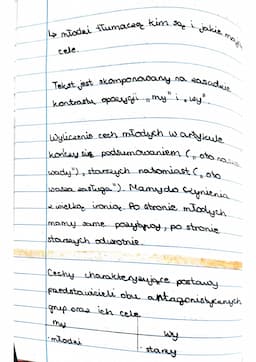 ↳ młodzi tłumaczą kim są i jakie mają
cele.
Tekst jest skomponowany na zasadzie
kontrastu opozycji „my" i „wy".
Wyliczenie cech młodych w artykule
kończy się podsumowaniem („oto nasze
wady"), starszych natomiast („oto
wasza zasługa"). Mamy do czynienia
z wielką ironią. Po stronie młodych
mamy same pozytywy, po stronie
starszych odwrotnie.
Cechy charakteryzujące postawy
przedstawicieli obu antagonistycznych
grup oraz ich cele
my wy
· młodzi · starzy